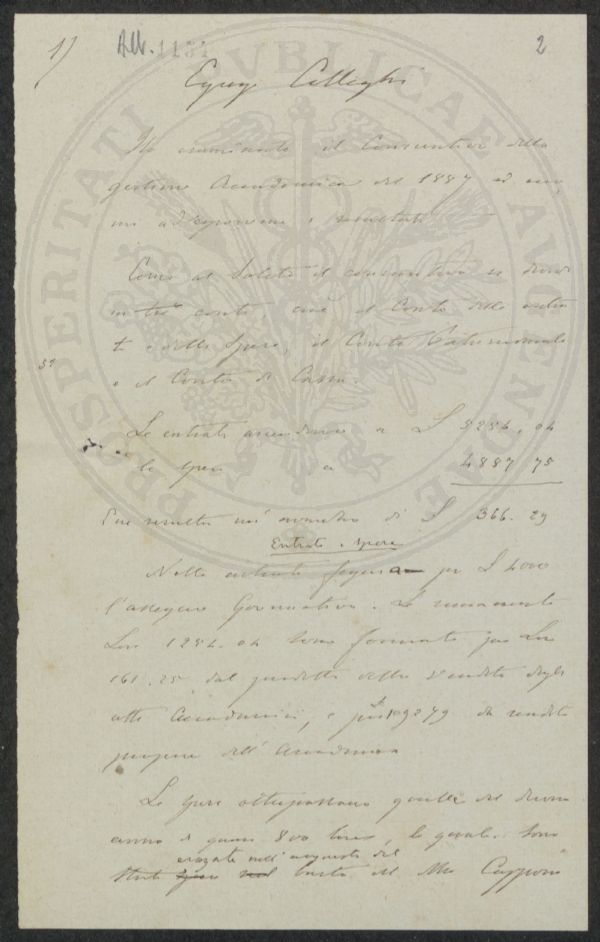 1)
Alb. 1131
2
Egregi Colleghi
Ho esaminato il Consuntivo della
gestione Accademica del 1887 ed
ad esporvene i resultati
Come al solito il consuntivo si divide
in tre conti, cioè il Conto delle entra
te e delle Spese, il Conto Patrimoniale
e il Conto di Cassa.
Le entrate ascendono a £ 5254. 04
le spese a 4887 75
E ne resulta un' avanzo di £ 366. 29
Entrate e spese
Nelle entrate figura per £ 4000
l'assegno Governativo. Le rimanenti
Lire 1254. 04 sono formate per Lire
161. 25 dal prodotto della vendita degli
atti Accademici, e per £ 1092 79 da rendite
proprie dell' Accademia
Le spese oltrepassano quelle del decorso
anno di quasi 800 lire, le quali sono
erogate nell' acquisto del
state busto del Mse Capponi
PROSPERITATI PVBLICAE AVGENDAE